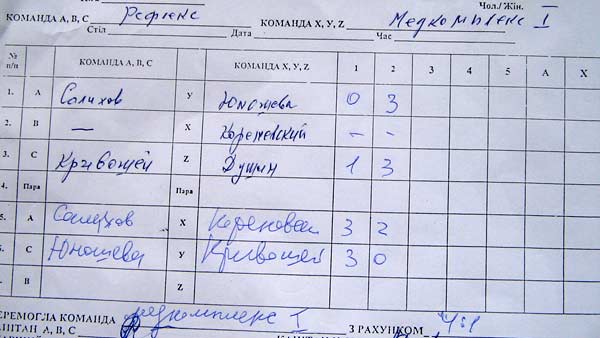 Чол./ Жін.
КОМАНДА А, В, С Рефлекс КОМАНДА X, Y, Z Медкомплекс I
Стіл Дата Час
№ п/п КОМАНДА А, В, С КОМАНДА X, Y, Z 1 2 3 4 5 А Х
1. А Салихов У Юношева 0 3
2. В — Х Кореневский - -
3. С Кривошей Z Душин 1 3
4. Пара Пара
5. А Салихов Х 3 2
6. С Юношева У Кривошей 3 0
В Z
ЕРЕМОГЛА КОМАНДА Медкомплекс I З РАХУНКОМ
ПІТАН А, В, С